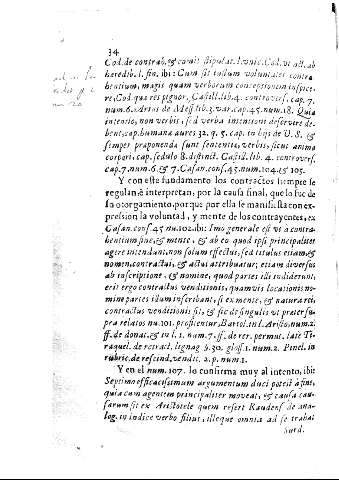 34
Cod. de contrab. & comit. stipulat. l. unic. Cod. ut act. ab
heredib. l. fin. ibi: Cum sit iustum voluntates contra
hentium, magis quam verborum conceptionem inspice-
re, Cod. qua res pignor. Castill. lib. 4. controvers. cap. 7.
num. 6. Aros de Mess. lib. 3. var. cap. 45. num. 18. Quia
intentio, non verbis, sed verba intentioni deservire de-
bent, cap. humana aures 32. q. 5. cap. in hijs de V. S. &
semper praponenda sunt sententia, verbis, sicut anima
corpori, cap. sedulo 8. distinct. Castill. lib. 4. controvers.
cap. 7. num. 6. & 7. Casan. cons. 45. num. 104. & 105.
Y con este fundamento los contractos siempre se
regulan è interpretan; por la causa final, que lo fue de
la otorgamiento, por que por ella se manifiesta con ex-
pression la voluntad, y mente de los contrayentes, ex
Casan. cons. 45 nu. 102. ibi: Imo generale est vt à contra-
hentium fine, & mente, & ab eo quod ipsi principaliter
agere intendunt, non solum effectus, sed titulus etiam, &
nomen, contractui, & actus attribuatur; etiam diversos
ab inscriptione, & nomine, quod partes illi indiderunt,
erit ergo contractus venditionis, quamvis locationis no-
mine partes illum inscribant, si ex mente, & natura rei,
contractus venditionis sit, & sic de singulis vt prater su-
pra relatos nu. 101. profitentur, Bartol. in l. Aristo, num. 2.
ff. de donat. & in l. 1. num. 7. ff. de rer. permut. late Ti-
raquel. de retract. lignag. §. 30. gloss. 1. num. 2. Pinel. in
rubric. de rescind. vendit. 2. p. num. 1.
Y en el num. 107. lo confirma muy al intento, ibi:
Septimo efficacissimum argumentum duci potest à fine,
quia cum agentem principaliter moveat, & causa cau-
sarum sit ex Aristotele quem refert Raudens. de ana-
log. in indice verbo finis, illeque omnia ad se trahat
Surd.